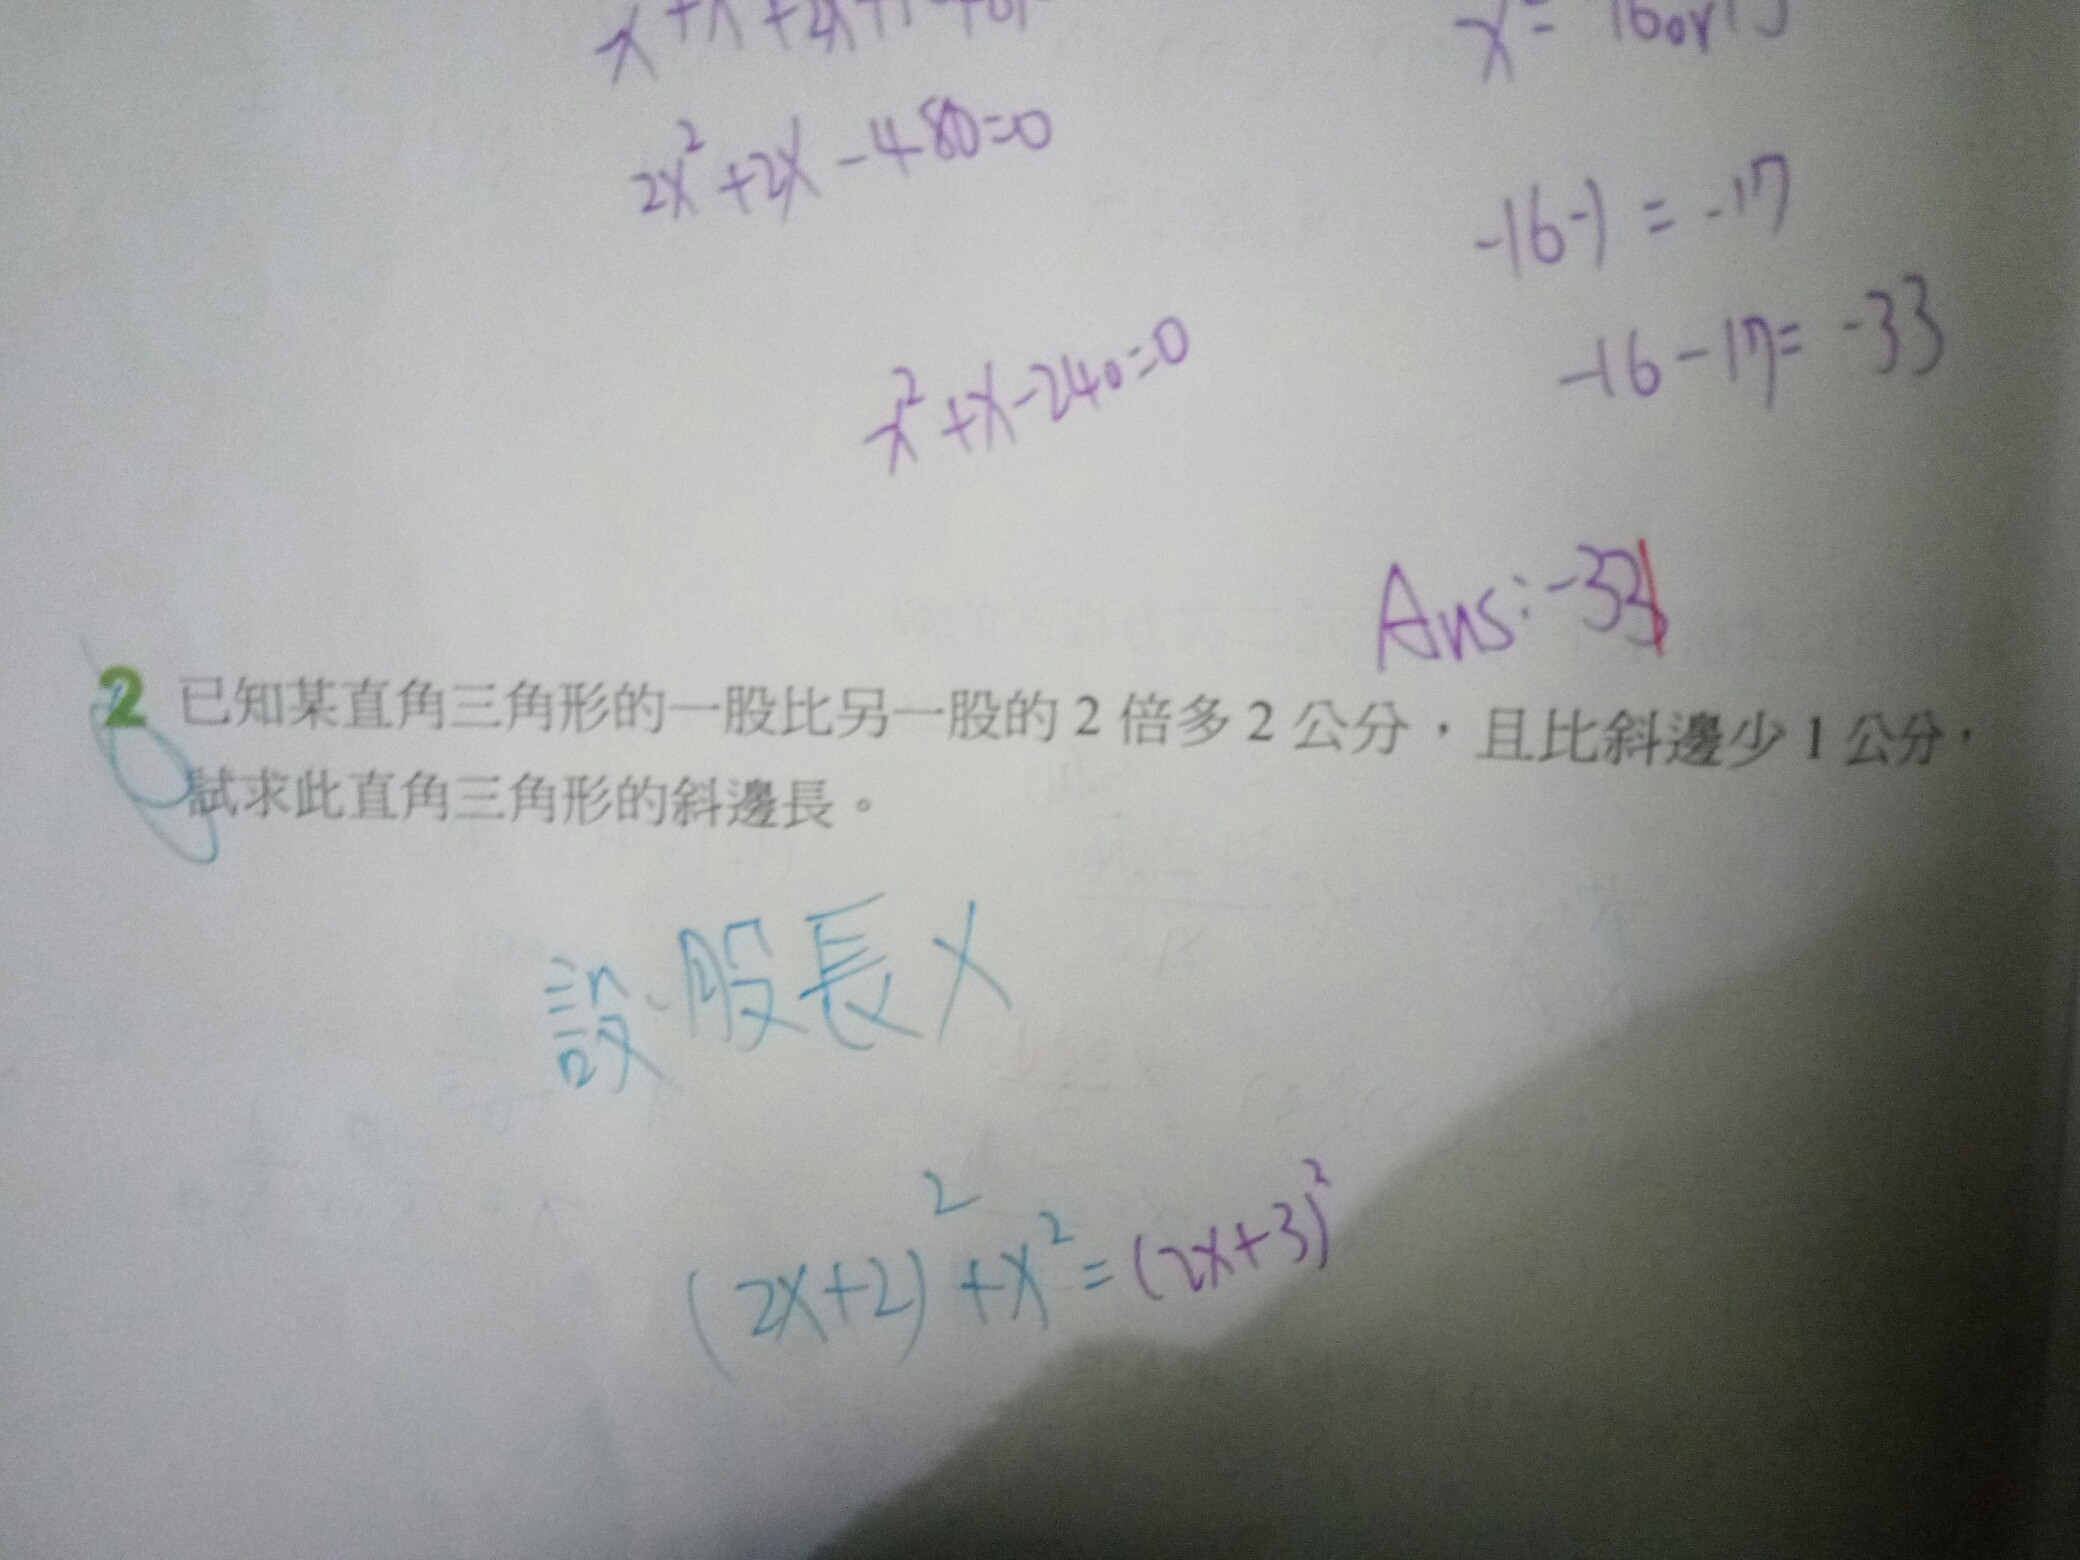 2x²+2x-480=0
-16-1=-17
-16-17=-33
x²+x-240=0
Ans:-33
2 已知某直角三角形的一股比另一股的 2 倍多 2 公分，且比斜邊少 1 公分，
試求此直角三角形的斜邊長。
設股長x
(2x+2)²+x²=(2x+3)²